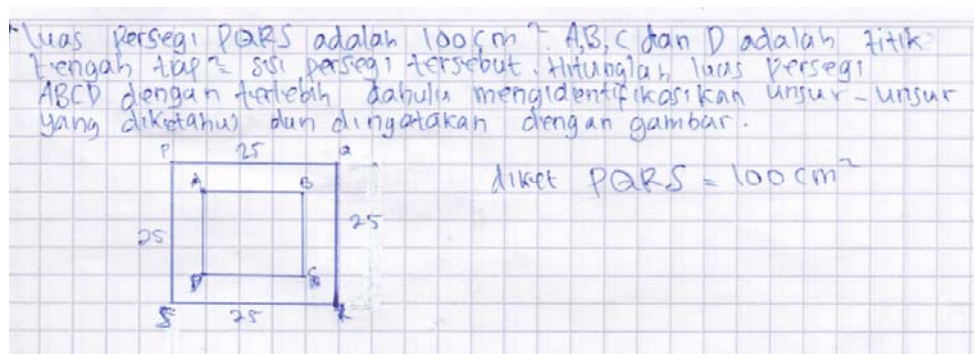 Luas Persegi PQRS adalah 100 cm². A,B,C dan D adalah titik
tengah tiap² sisi persegi tersebut. Hitunglah luas persegi
ABCD dengan terlebih dahulu mengidentifikasikan unsur-unsur
yang diketahui dan dinyatakan dengan gambar.
P 25 Q
diket PQRS = 100 cm²
A B
25 25
D C
S 25 R